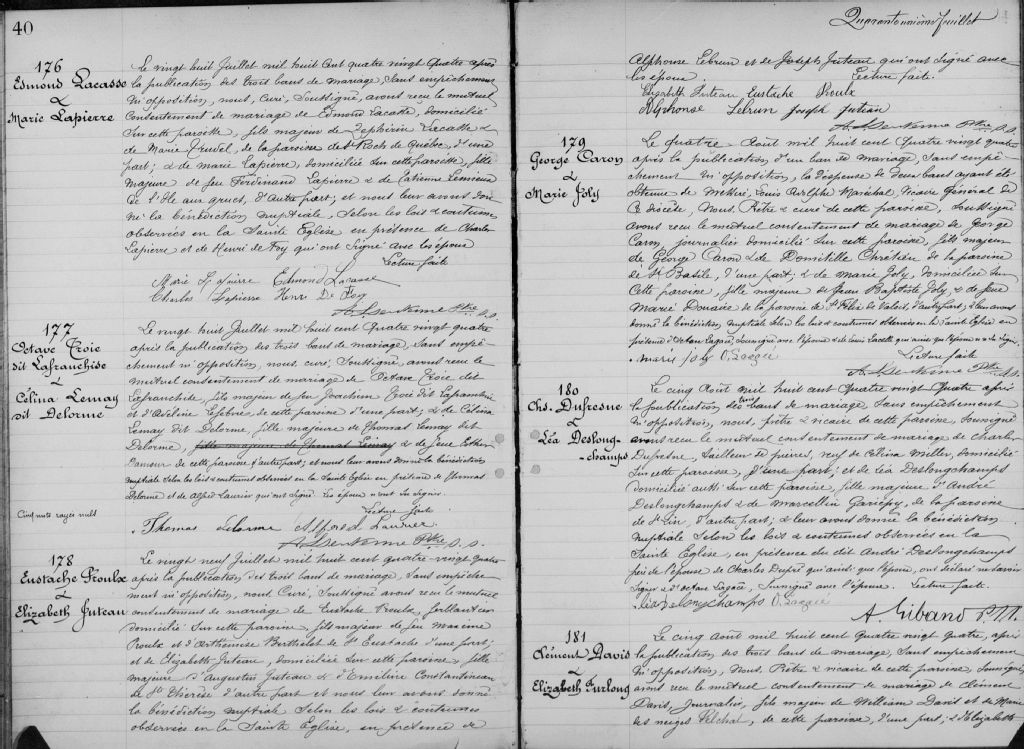 40
176
Edmond Lacasse
&
Marie Lapierre
Le vingt huit Juillet mil huit cent quatre vingt quatre après
la publication des trois bans de mariage, sans empêchement
ni opposition, nous, curé, soussigné, avons reçu le mutuel
consentement de mariage de Edmond Lacasse, domicilié
sur cette paroisse, fils majeur de Zéphirin Lacasse &
de Marie Trudel, de la paroisse de St Roch de Québec, d'une
part; & de Marie Lapierre, domiciliée sur cette paroisse, fille
majeure de feu Ferdinand Lapierre & de Lemieux
de l'Ile aux grues, d'autre part; et nous leur avons don-
né la bénédiction nuptiale, selon les lois & coutumes
observées en la Sainte Eglise en présence de Charles
Lapierre et de Henri de Foy qui ont signé avec les époux
Lecture faite
Marie Lapierre Edmond Lacasse
Charles Lapierre Henri De Foy
Ptre S.S.
177
Octave Troie
dit Lafranchise
&
Célina Lemay
dit Delorme
Le vingt huit Juillet mil huit cent quatre vingt quatre
après la publication des trois bans de mariage, sans empê-
chement ni opposition, nous curé, soussigné, avons reçu le
mutuel consentement de mariage de Octave Troie dit
Lafranchise, fils majeur de feu Joachim Troie dit Lafranchise
et d'Avéline Lefebvre, de cette paroisse d'une part; & de Célina
Lemay dit Delorme, fille majeure de Thomas Lemay dit
Delorme fille majeure de Thomas Lemay & de feue Esther
de cette paroisse d'autre part; et nous leur avons donné la bénédiction
nuptiale selon les lois & coutumes observées en la Sainte Eglise en présence de Thomas
Delorme et de Alfred Laurier qui ont signé. Les époux n'ont su signer.
Cinq mots rayés nuls
Lecture faite
Thomas Delorme Alfred Laurier
Ptre S.S.
178
Eustache Proulx
&
Elizabeth Juteau
Le vingt neuf Juillet mil huit cent quatre-vingt quatre
après la publication des trois bans de mariage, sans empêche-
ment ni opposition, nous, Curé, soussigné avons reçu le mutuel
consentement de mariage de Eustache Proulx, ferblantier
domicilié sur cette paroisse, fils majeur de feu Maxime
Proulx et d'Arthémise Berthelet de St Eustache d'une part;
et de Elizabeth Juteau, domiciliée sur cette paroisse, fille
majeure d'Augustin Juteau & d'Eméline Constantineau
de Ste Thérèse d'autre part et nous leur avons donné
la bénédiction nuptiale selon les lois & coutumes
observées en la Sainte Eglise, en présence de
Quarante unième feuillet
Alphonse Lebrun et de Joseph Juteau qui ont signé avec
les époux. Lecture faite.
Elizabeth Juteau Eustache Proulx
Alphonse Lebrun Joseph Juteau
Ptre S.S.
179
George Caron
&
Marie Joly
Le quatre Août mil huit cent quatre vingt quatre
après la publication, d'un ban de mariage, sans empê-
chement ni opposition, la dispense de deux bans ayant été
obtenue de Messire, Louis Maréchal, Vicaire Général de
ce diocèse, Nous, Prêtre & curé de cette paroisse, soussigné
avons reçu le mutuel consentement de mariage de George
Caron, journalier domicilié sur cette paroisse, fils majeur
de George Caron & de Domitille Chrétien de la paroisse
de St Basile, d'une part; & de Marie Joly, domiciliée sur
cette paroisse, fille majeure de Jean Baptiste Joly, & de feue
Marie de la paroisse de St Félix de Valois, d'autre part; & leur avons
donné la bénédiction nuptiale selon les lois & coutumes observées en la Sainte Eglise en
présence d'Octave Lagacé, soussigné avec l'épouse & de Louis qui ainsi que l'époux n'a su signer.
Lecture faite
Marie Joly O. Lagacé
Ptre S.S.
180
Chs. Dufresne
&
Léa Deslong-
-champs
Le cinq Août mil huit cent quatre vingt quatre après
la publication des trois bans de mariage, sans empêchement
ni opposition, nous, prêtre & vicaire de cette paroisse, soussigné
avons reçu le mutuel consentement de mariage de Charles
Dufresne, tailleur de pierres, veuf de Célina Miller, domicilié
sur cette paroisse, d'une part; et de Léa Deslongchamps
domiciliée aussi sur cette paroisse, fille majeure d'André
Deslongchamps & de Marcelline Gariépy, de la paroisse
de St Lin, d'autre part; & leur avons donné la bénédiction
nuptiale selon les lois & coutumes observées en la
Sainte Eglise, en présence du dit André Deslongchamps
père de l'épouse de Charles Dupré qui ainsi que l'époux, ont déclaré ne savoir
signer & d'Octave Lagacé, soussigné avec l'épouse. Lecture faite.
Léa Deslongchamps O. Lagacé
A. Giband P.S.S.
181
Clément Davis
&
Elizabeth Furlong
Le cinq août mil huit cent quatre vingt quatre, après
la publication des trois bans de mariage, sans empêchement
ni opposition, Nous, Prêtre & vicaire de cette paroisse, soussigné,
avons reçu le mutuel consentement de mariage de Clément
Davis, journalier, fils majeur de William Davis et de Marie
des neiges de cette paroisse, d'une part; & d'Elizabeth